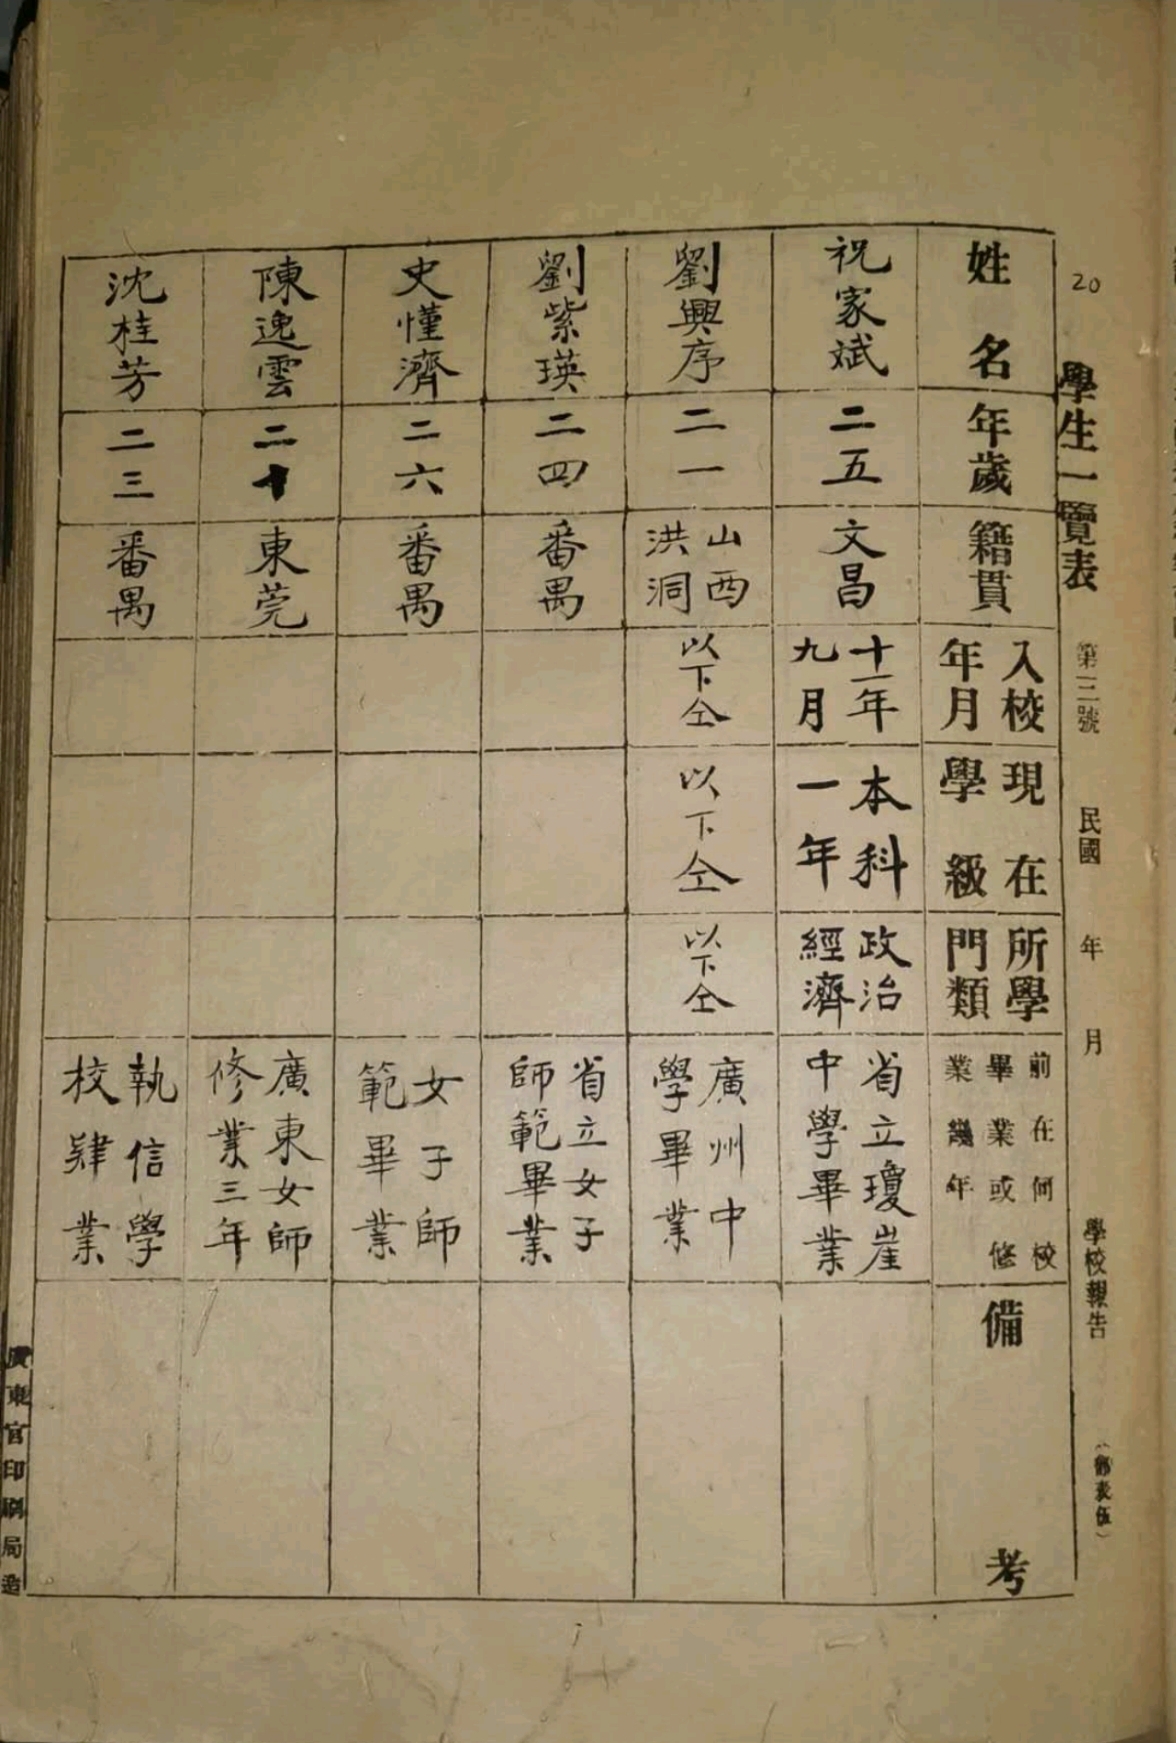 20
學生一覽表 第三號 民國 年 月 學校報告
姓名
年歲
籍貫
入校
年月
現在
學級
所學
門類
前在何校
畢業或修
業幾年
備考
祝家斌
二五
文昌
十一年
九月
本科
一年
政治
經濟
省立瓊崖
中學畢業
劉興序
二一
山西
洪洞
以下仝
以下仝
以下仝
廣州中
學畢業
劉紫瑛
二四
番禺
省立女子
師範畢業
史懂濟
二六
番禺
女子師
範畢業
陳逸雲
二十
東莞
廣東女師
修業三年
沈桂芳
二三
番禺
執信學
校肄業
廣東官印刷局造